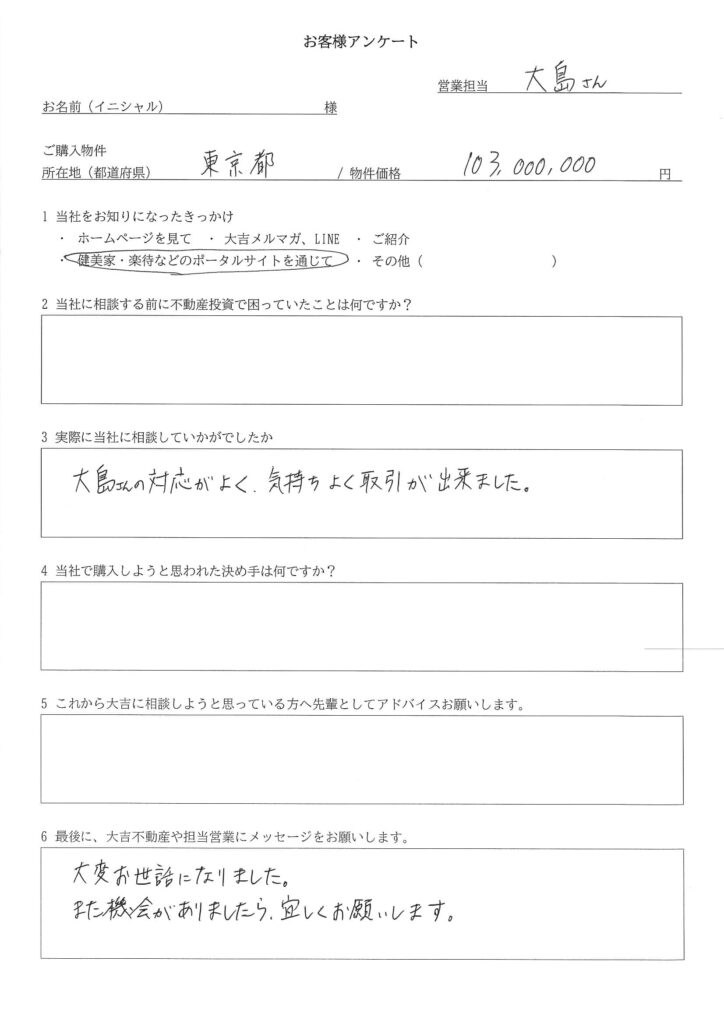 お客様アンケート
営業担当 大島さん
お名前（イニシャル） 様
ご購入物件
所在地（都道府県） 東京都 / 物件価格 103,000,000 円
1 当社をお知りになったきっかけ
・ ホームページを見て ・ 大吉メルマガ、LINE ・ ご紹介
・ 健美家・楽待などのポータルサイトを通じて ・ その他（ ）
2 当社に相談する前に不動産投資で困っていたことは何ですか？
3 実際に当社に相談していかがでしたか
大島さんの対応がよく、気持ちよく取引が出来ました。
4 当社で購入しようと思われた決め手は何ですか？
5 これから大吉に相談しようと思っている方へ先輩としてアドバイスお願いします。
6 最後に、大吉不動産や担当営業にメッセージをお願いします。
大変お世話になりました。
また機会がありましたら、宜しくお願いします。